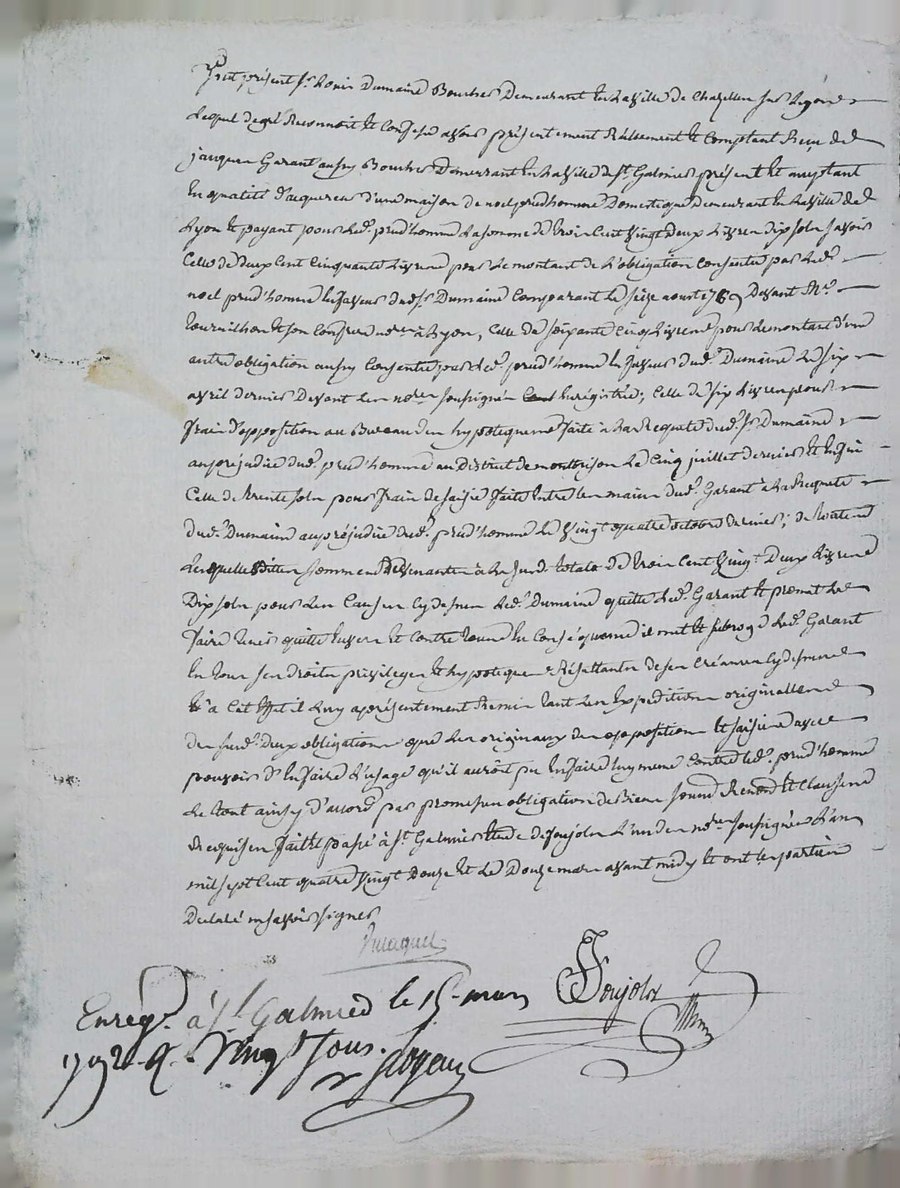 fut présent sr. Louis Dumaine Boucher Demeurant en la ville de Chazelles sur Lyon
Lequel de gré Reconnoit et Confesse avoir présentement Réellement et Comptant Reçu de
jacques Garant aussy Boucher Demeurant en la ville de st. Galmier présent et acceptant
En qualité d'acquereur d'une maison de noel prudhomme Domestique Demeurant en la ville de
Lyon et payant pour led. prud'homme La somme de trois Cent vingt Deux Livres dix sols savoir
Celle de deux Cent Cinquante Livres pour Le montant de L'obligation consentie par led.
noel prud'homme En faveur dud. sr. Dumaine Comparant le seize aoust Devant Me.
tournilhon et son Confrere nores. à Lyon, Celle de soixante Cinq Livres pour le montant d'une
autre obligation aussy Consentie par led. prud'homme En faveur dud. Dumaine Le six
avril dernier Devant Les nores. soussignés Enrégistrée, Celle de six Livres pour
frais d'opposition au Bureau des hypoteques faite à La Requete dud. sr. Dumaine
au préjudice dud. prud'homme au District de montbrison Le Cinq juillet dernier et Enfin
Celle de trente sols pour frais de saisie faite Entre les mains dud. Garant à La Requete
dud. Dumaine au préjudice dud. prud'homme Le vingt quatre octobre dernier; de toutes
Lesquelles dittes sommes Revenantes à La susd. totale de trois Cent vingt Deux Livres
Dix sols pour Les Causes cy dessus led. Dumaine quitte led. Garant et promet Le
faire tenir quitte Envers et Contre tous En Conséquence il met et subroge led. Garant
En tous ses droits privileges et hypoteques Résultantes de ses Créances cy dessus
Et à Cet Effet il Luy a présentement Remis tant Les Expeditions originalles
des susd. Deux obligations que Les originaux des opposition Et saisie avec
pouvoir d'En faire L'usage qu'il auroit pu En faire luy meme Contre led. prud'homme
Le tout ainsy d'accord par promesses obligation de Biens soumd Renond et Clauses
Requises fait et passé à st. Galmier Etude de Soujols L'un des nores. soussignés L'an
mil sept Cent quatre vingt Douze et Le Douze mars avant midy Et ont les parties
Declaré ne savoir signer
Soujols
Enrég. à st. Galmier le 15 mars
1792 R. vingt sous.